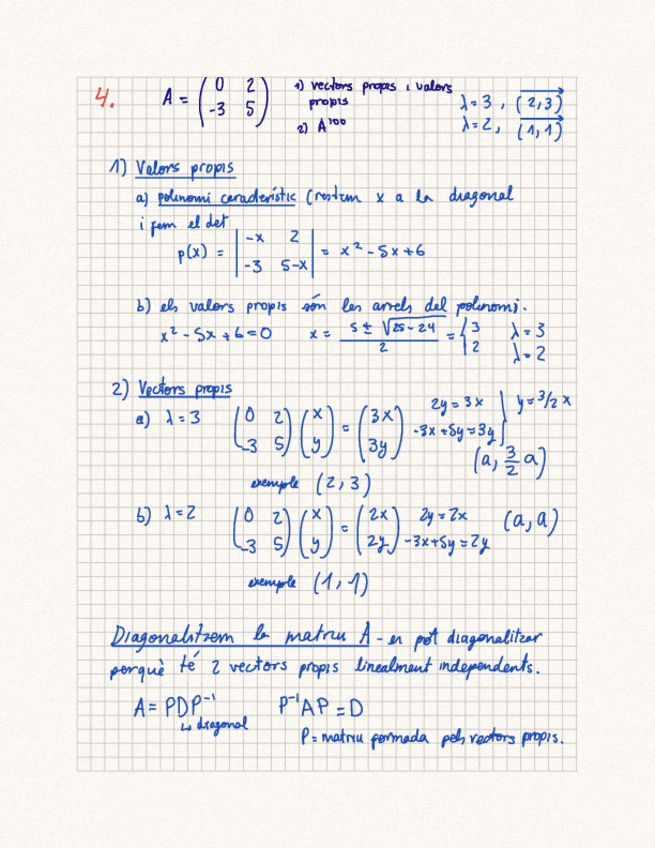 4. A = ( 0 2 ; -3 5 ) 1) vectors propis i valors propis λ=3, (2,3)
2) A¹⁰⁰ λ=2, (1,1)
1) Valors propis
a) polinomi característic (restem x a la diagonal
i fem el det
p(x) = | -x 2 ; -3 5-x | = x² - 5x + 6
b) els valors propis són les arrels del polinomi.
x² - 5x + 6 = 0 x = (5 ± √(25 - 24))/2 = { 3 ; 2 λ=3 λ=2
2) Vectors propis
a) λ=3 ( 0 2 ; -3 5 ) ( x ; y ) = ( 3x ; 3y ) 2y = 3x -3x+5y=3y | y = 3/2 x
(a, 3/2 a)
exemple (2,3)
b) λ=2 ( 0 2 ; -3 5 ) ( x ; y ) = ( 2x ; 2y ) 2y = 2x -3x+5y = 2y (a,a)
exemple (1,1)
Diagonalitzem la matriu A - es pot diagonalitzar
perquè té 2 vectors propis linealment independents.
A = PDP⁻¹ P⁻¹AP = D
↳ diagonal
P = matriu formada pels vectors propis.